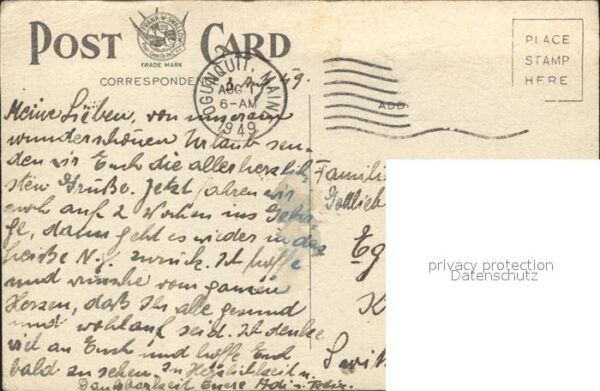 POST CARD
FRANK W. SWALLOW
TRADE MARK
CORRESPONDEN
PLACE
STAMP
HERE
OGUNQUIT, MAIN
AUG
6-AM
1949
ADD
Meine Lieben, von unserem
wunderschönen Urlaub sen-
den wir Euch die allerherzlich
sten Grüße. Jetzt fahren wir
noch auf 2 Wochen ins Gebir
ge, dann geht es wieder in das
heiße N.Y. zurück. Ich hoffe
und wünsche vom ganzen
Herzen, daß Ihr alle gesund
und wohlauf seid. Ich denke
viel an Euch und hoffe Euch
bald zu sehen. In Herzlichkeit u.
Dankbarkeit Eure
Famili
Gottlieb
Eg
K
privacy protection
Datenschutz